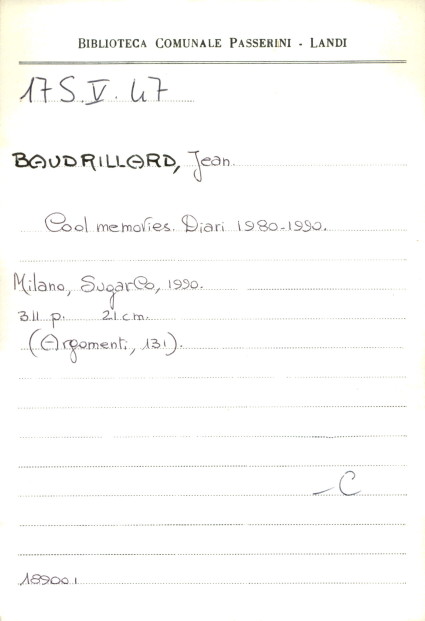 BIBLIOTECA COMUNALE PASSERINI - LANDI
17 S. V. 47
BAUDRILLARD, Jean.
Cool memories. Diari 1980-1990.
Milano, SugarCo, 1990.
311 p. 21 cm.
(Argomenti, 131).
-C
189001